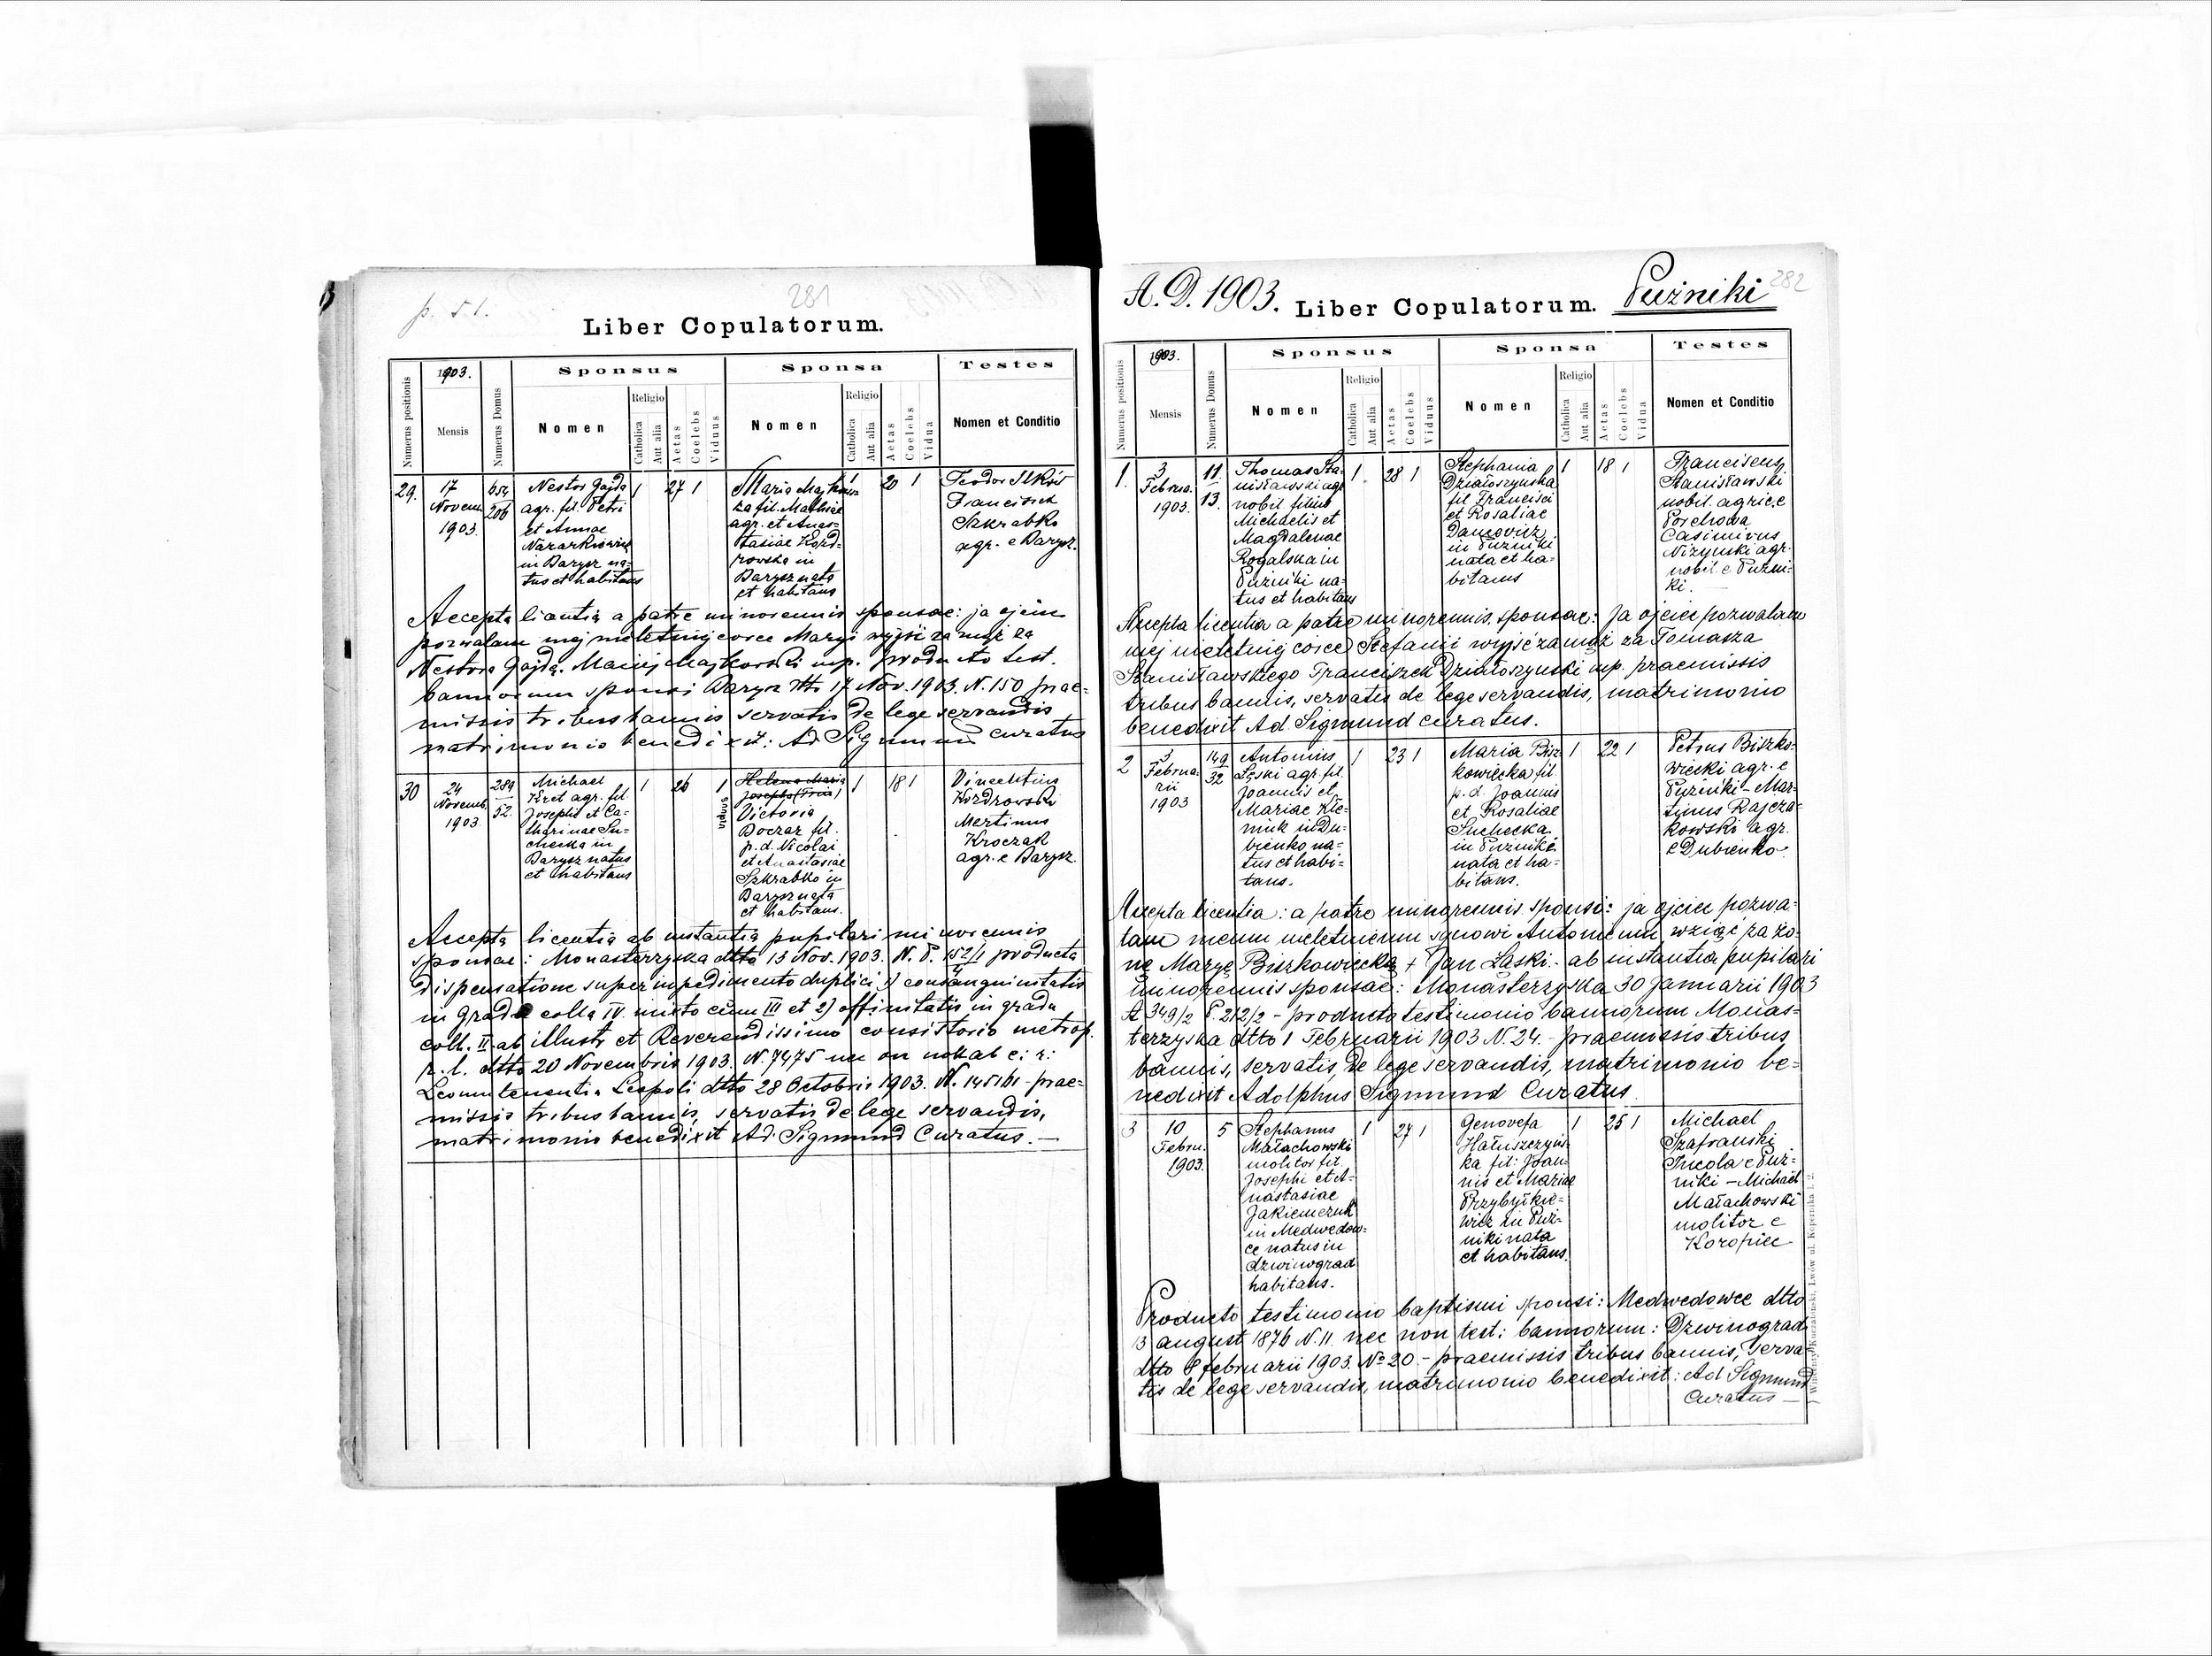 p. 51.
281
Liber Copulatorum.
Numerus positionis
1903.
Mensis
Numerus Domus
Sponsus
Nomen
Religio
Catholica
Aut alia
Aetas
Coelebs
Viduus
Sponsa
Nomen
Religio
Catholica
Aut alia
Aetas
Coelebs
Vidua
Testes
Nomen et Conditio
29.
17
Novem.
1903.
654
206
Nestor Gajda
agr. fil. Petri
et Annae
Nazarkiewicz
in Barysz na=
tus et habitans
1
27
1
Maria Majkows
ka fil. Mathiae
agr. et Anas=
tasiae Kozd=
rowska in
Barysz nata
et habitans
1
20
1
Teodor
Franciszek
Szkrabko
agr. e Barysz.
Accepta licentia a patre minorennis sponsae: ja ojciec
pozwalam mej nieletniej corce Maryi wyjść za mąż za
Nestora Gajdą. Maciej Majkowski mp. producto test.
bannorum sponsi Barysz dtto 17 Nov. 1903. N. 150 prae=
missis tribus bannis servatis de lege servandis
matrimonio benedixit: Ad. Sigmund curatus
30
24
Novemb.
1903
289
52.
Michael
Kret agr. fil.
Josephi et Ca=
tharinae Su=
checka in
Barysz natus
et habitans
1
26
1
Helena Maria
Victoria
Boczar fil.
p. d. Nicolai
et Anastasiae
Szkrabko in
Barysz nata
et habitans.
1
18
1
Vincentius
Kozdrowski
Martinus
Kroczak
agr. e Barysz.
Accepta licentia ab instantia pupilari minorennis
sponsae: Monasterzyska dtto 13 Nov. 1903. N. P. 152/1 producta
dispensatione super impedimento duplici 1) consanguinitatis
in gradu colla IV. mixto cum III et 2) affinitatis in gradu
coll. II ab illustr et Reverendissimo consistorio metrop.
r. l. dtto 20 Novembris 1903. N. 7475 nec on
Leopoli dtto 28 Octobris 1903. N. 145161 - prae=
missis tribus bannis, servatis de lege servandis,
matrimonio benedixit Ad. Sigmund Curatus. —
A. D. 1903.
Liber Copulatorum.
Puźniki
282
Numerus positionis
1903.
Mensis
Numerus Domus
Sponsus
Nomen
Religio
Catholica
Aut alia
Aetas
Coelebs
Viduus
Sponsa
Nomen
Religio
Catholica
Aut alia
Aetas
Coelebs
Vidua
Testes
Nomen et Conditio
1.
3
Februa.
1903.
11
13.
Thomas Sta=
nisławski agr.
nobil filius
Michaelis et
Magdalenae
Rogalska in
Puźniki na=
tus et habitans
1.
28
1
Stephania
Działoszynska
fil Francisci
et Rosaliae
Dancewicz
in Puźniki
nata et ha=
bitans
1
18
1
Franciscus
Stanisławski
nobil. agric. e
Porchowa
Casimirus
Niżynski agr.
nobil e Puźni=
ki.
Accepta licentia a patre minorennis sponsae: ja ojciec pozwalam
mej nieletniej córce Stefanii wyjść za mąż za Tomasza
Stanisławskiego Franciszek Działoszynski mp. praemissis
tribus bannis, servatis de lege servandis, matrimonio
benedixit Ad. Sigmund curatus.
2
3
Februa.
rii
1903
149
32
Antonius
Łęski agr. fil.
Joannis et
Mariae Kłe=
mnik in Du=
bienko na=
tus et habi=
tans.
1
23
1
Maria Bisz
kowiecka fil
p. d. Joannis
et Rosaliae
Suchecka
in Puźniki
nata et ha=
bitans.
1
22
1
Petrus Biszko=
wiecki agr. e
Puźniki - Mar=
tinus Rajcza=
kowski agr.
e Dubienko.
Accepta licentia: a patre minorennis sponsi: ja ojciec pozwa=
lam memu nieletniemu synowi Antoniemu wziąć za żo=
nę Maryę Biszkowiecką + Jan Łaski. - ab instantia pupilari
minorennis sponsae: Monasterzyska 30 Januarii 1903
A 349/2 P. 212/2 - producto testimonio bannorum Monas=
terzyska dtto 1 Februarii 1903 N. 24. - praemissis tribus
bannis, servatis de lege servandis, matrimonio be=
nedixit Adolphus Sigmund Curatus.
3
10
Febru.
1903.
5
Stephanus
Małachowski
molitor fil.
Josephi et A=
nastasiae
Jakiemczuk
in Medwedow=
ce natus in
dzwinograd
habitans.
1
27
1
Genovefa
Hałuszczyńs
ka fil: Joan=
nis et Mariae
Przybyłkie=
wicz in Puź=
niki nata
et habitans.
1
25
1
Michael
Szafranski
Incola e Puź=
niki - Michael
Małachowski
molitor e
Koropiec
Producto testimonio baptismi sponsi: Medwedowce dtto
13 august 1876 N. 11. nec non test: bannorum: Dzwinograd
dtto 8 februarii 1903. No 20. - praemissis tribus bannis, serva=
tis de lege servandis, matrimonio benedixit: Ad Sigmund
Curatus —